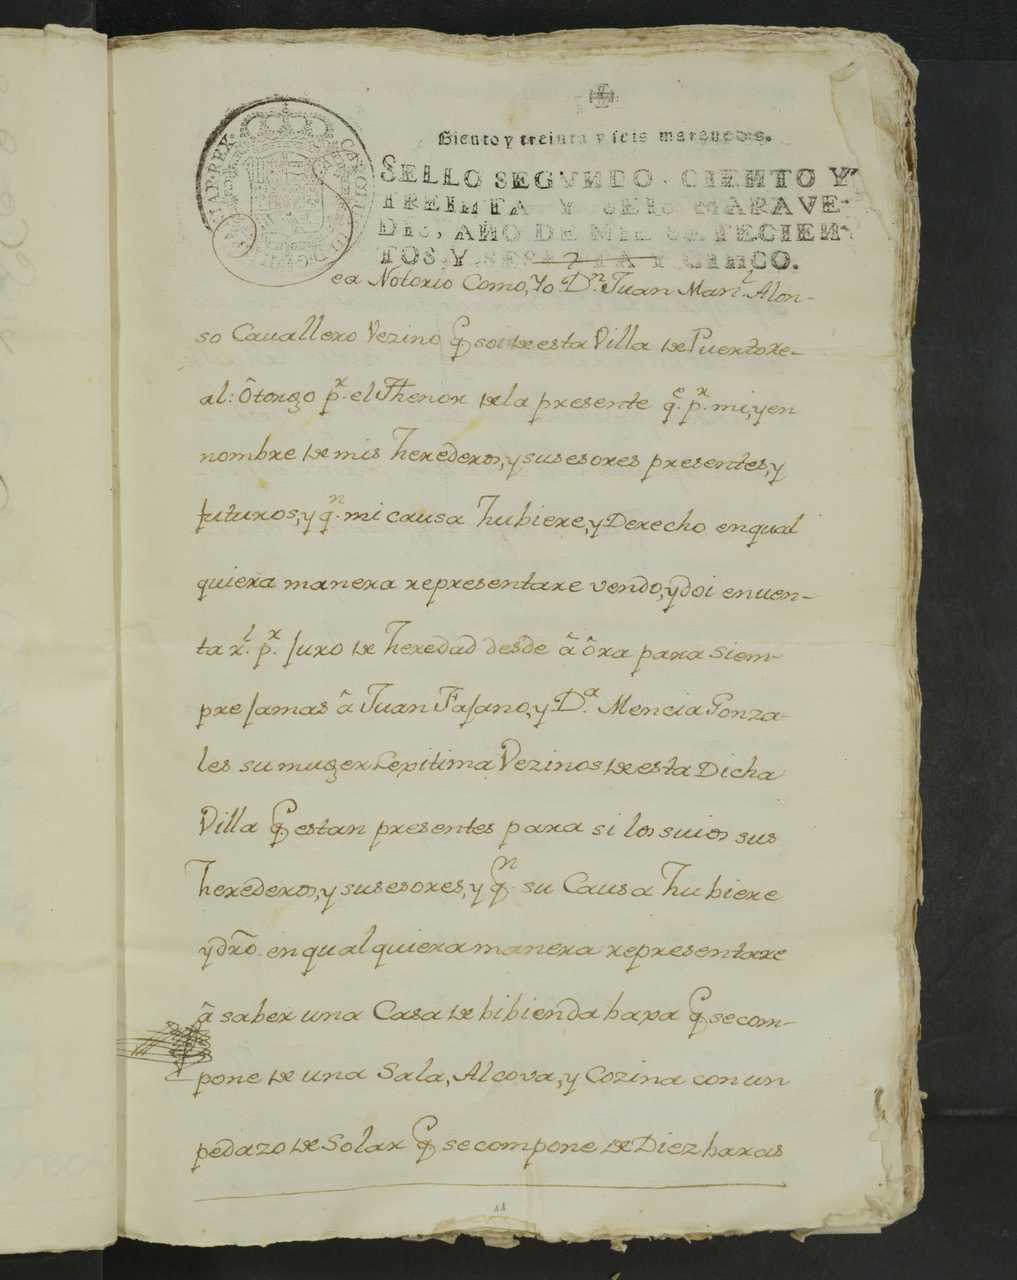 Ciento y treinta y seis marauedis.
SELLO SEGVNDO, CIENTO Y
TREINTA Y SEIS MARAVE-
DIS, AÑO DE MIL SETECIEN-
TOS Y SESENTA Y CINCO.
ea Notorio Como, Yo Dn. Juan Manl. Alon-
so Cauallero Vezino q soi de esta Villa de Puertore-
al: Ôtorgo pr. el Thenor de la presente qe. pr. mi, y en
nombre de mis herederos, y susesores presentes, y
futuros, y qn. mi causa hubiere, y Derecho en qual
quiera manera representare vendo, y doi en uen-
ta rl. pr. Juro de heredad desde â ôra para siem-
pre Jamas â Juan Fajano, y Da. Mencia Gonza-
les su muger Lexitima Vezinos de esta Dicha
Villa q estan presentes para si los suios sus
herederos, y susesores, y qn su Causa hubiere
y dro. en qual quiera manera representare
â saber una Casa de bibienda baxa q se com-
pone de una Sala, Alcova, y Cozina con un
pedazo de Solar q se compone de Diez baras
11